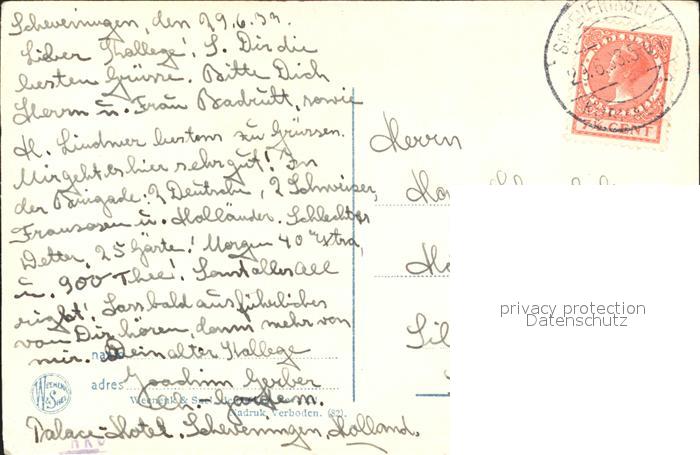 Scheveningen, den 29.6.33.
Lieber Kollege! S. Dir die
besten Grüsse. Bitte Dich
Herrn u. Frau Badrutt, sowie
H. Lindner bestens zu Grüssen.
Mir geht es hier sehr gut! In
der Brigade. 2 Deutsche, 2 Schweizer,
Fransosen u. Holländer. Schlechtes
Wetter. 25 Gäste! Morgen 40 Extra,
u. 900 Thee! Sonst alles All
right! Lass bald ausführliches
von Dir hören, dann mehr von
mir. Dein alter Kollege
Joachim Gerber
Palace-Hotel. Scheveningen, Holland.
naam
adres
Weenenk & Snel
Nadruk Verboden. (82).
Herrn
SCHEVENINGEN
29.6.33
7½ CENT
privacy protection
Datenschutz